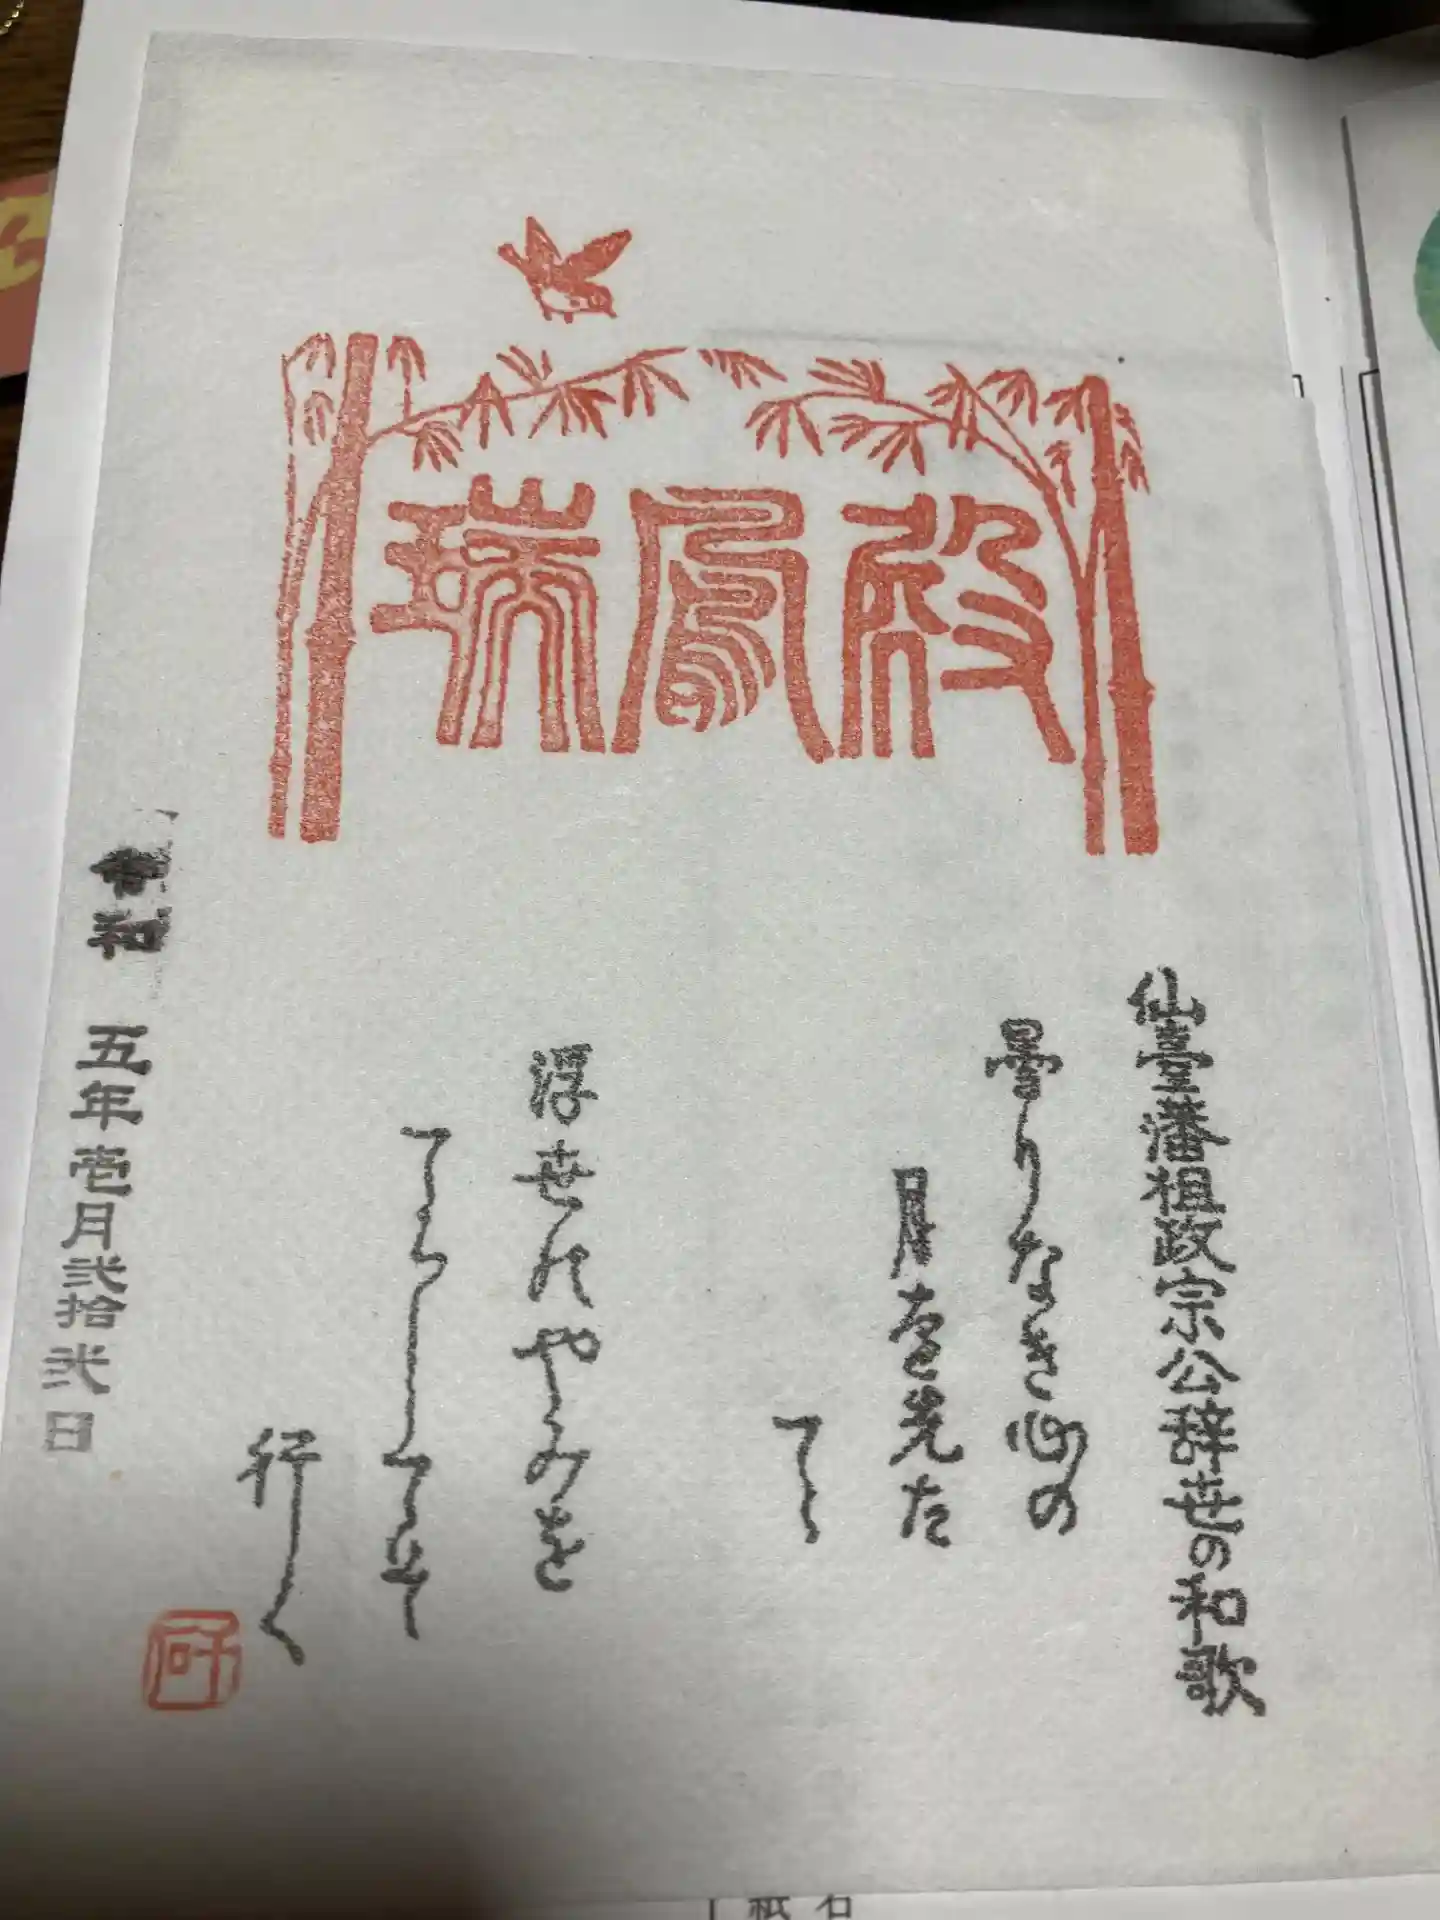 瑞鳳殿
仙臺藩祖政宗公辞世の和歌
曇りなき心の
月を先た
てゝ
浮世のやみを
てらしてそ
行く
令和 五年壱月弐拾弐日